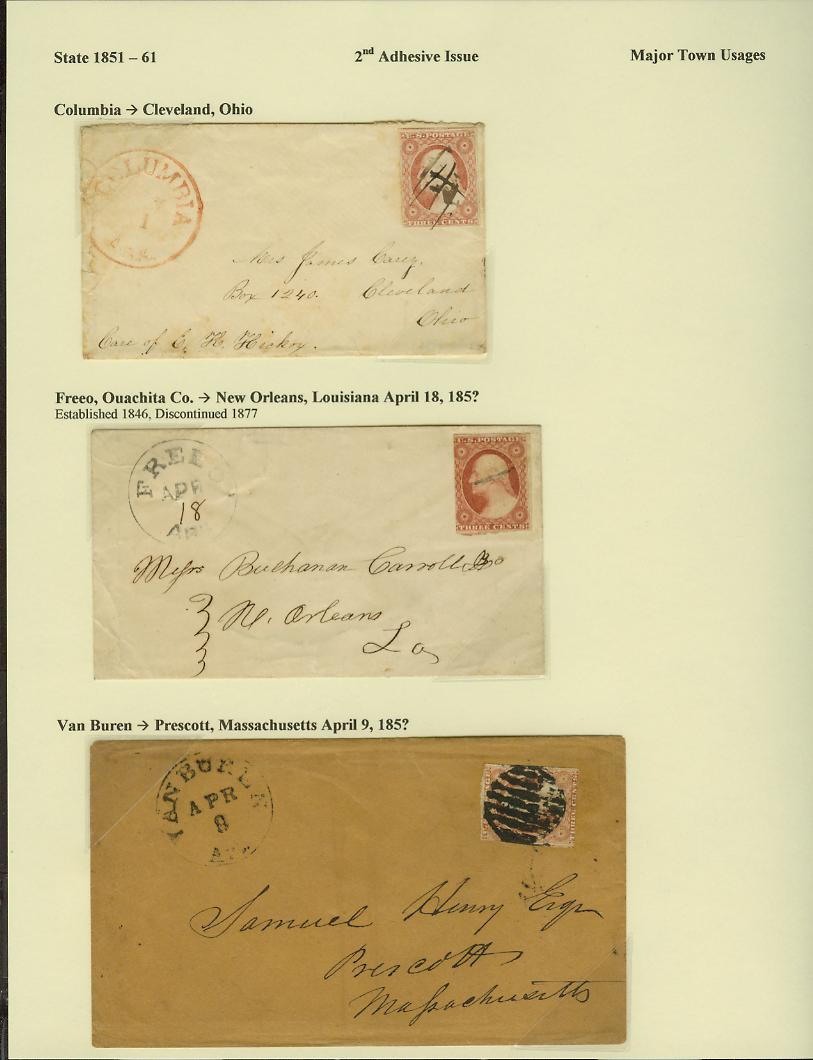 State 1851 – 61 2nd Adhesive Issue Major Town Usages
Columbia → Cleveland, Ohio
U.S. POSTAGE
THREE CENTS
COLUMBIA
1
ARK.
Mrs James Carey.
Box 1240. Cleveland
Ohio
Care of E. H. Hickox.
Freeo, Ouachita Co. → New Orleans, Louisiana April 18, 185?
Established 1846, Discontinued 1877
FREEO
APR
18
Ark
U.S. POSTAGE
THREE CENTS
Messrs Buchanan Carroll & Co
N. Orleans
La
Van Buren → Prescott, Massachusetts April 9, 185?
VAN BUREN
APR
9
THREE CENTS
Samuel Henry Esqr
Prescott
Massachusetts